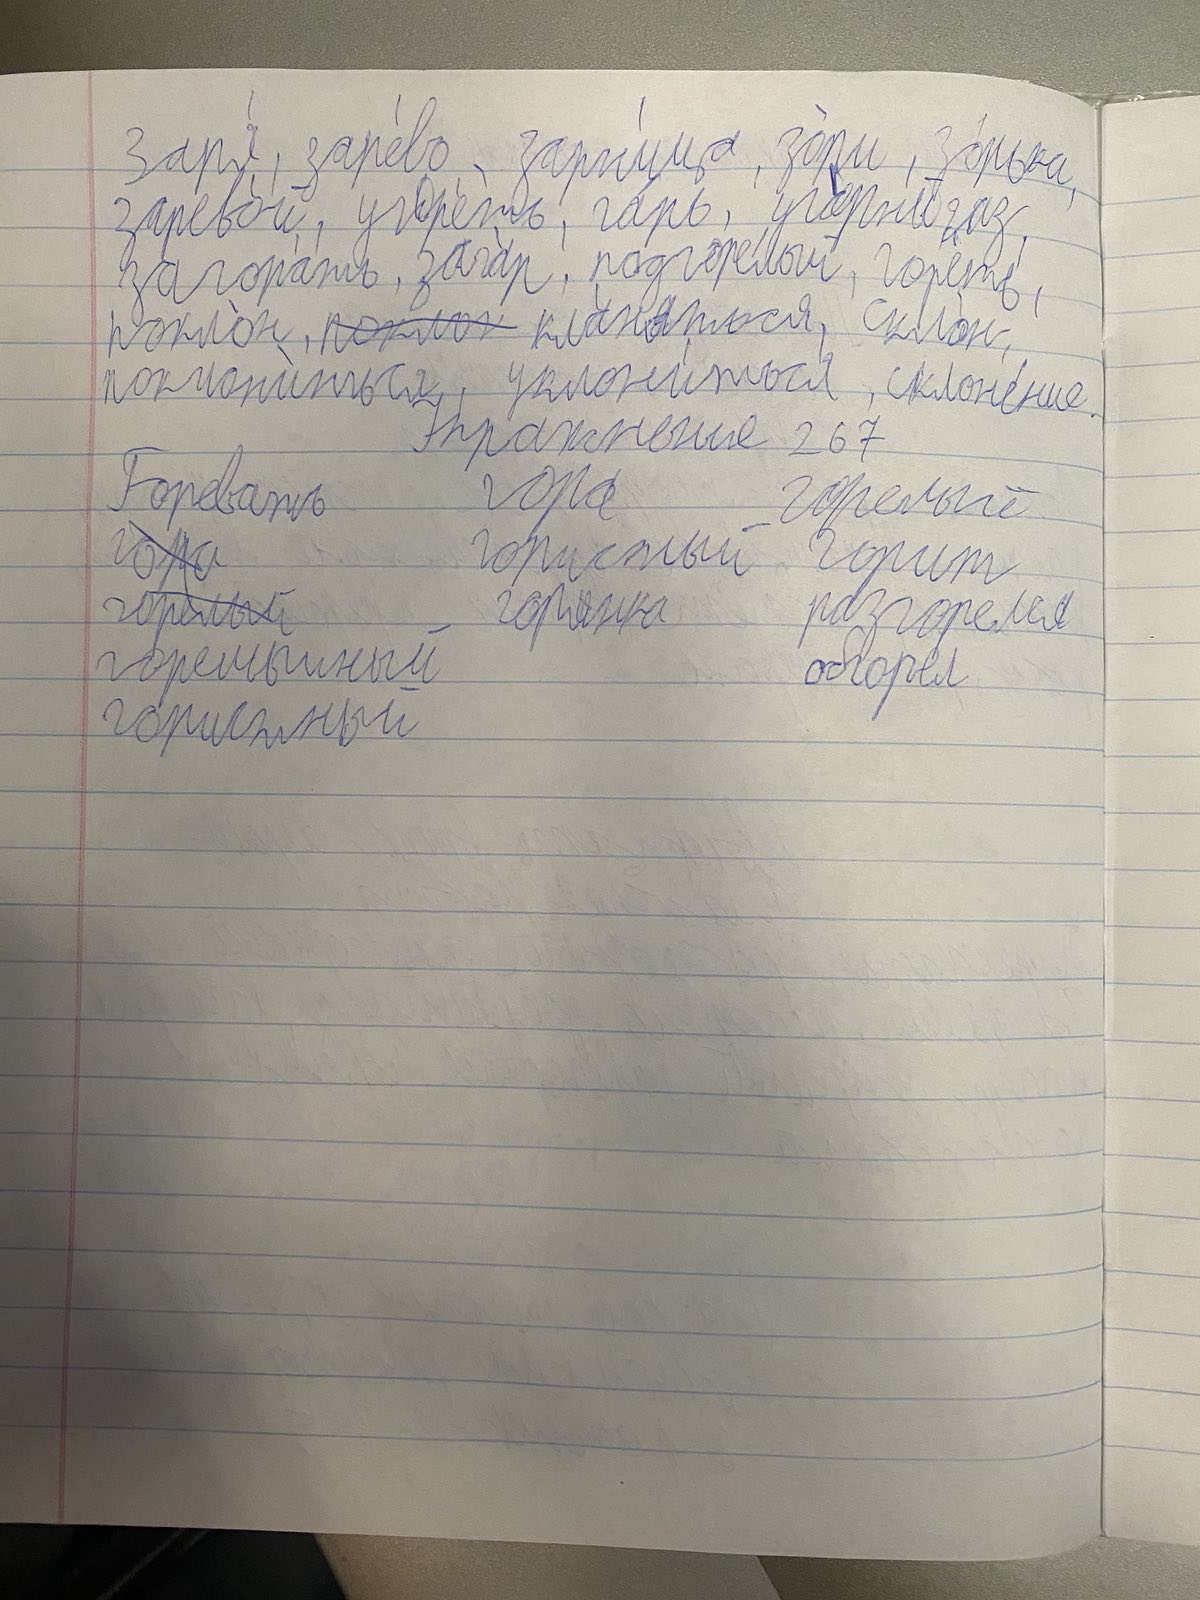 Заря́, заре́во, зарни́ца, зо́ри, зо́рька,
заревой, угоре́ть, га́рь, уга́рный газ,
загора́ть, зага́р, подгоре́лый, горе́ть,
покло́н, поклон кла́няться, скло́н,
поклони́ться, уклони́ться, склоне́ние.
Упражнение 267
Горевать гора горелый
гора гористый горит
горелый горянка разгорелся
горемычный обгорел
гористный